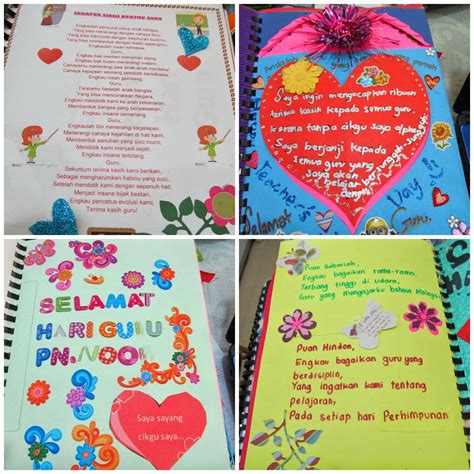 SEKAPUR SIREH KREATIF GURU
Engkaulah penyuluh hidup anak bangsa,
Yang bisa menerangi dengan cahaya,
Yang bisa membentuk dengan kasih sayangmu,
Engkau insan istimewa,
Guru,
Engkau bak lilin menerangi malam,
Engkau bak bulan menerangi malam,
Cahayamu menerangi jiwa anak anak bangsa,
Cahaya kejayaan seorang pendidik berwibawa,
Engkau insan gemilang,
Guru,
Tanpamu tiadalah anak bangsa,
Yang bisa memakmurkan Negara,
Engkau mendidik kami ke arah kebenaran,
Membentuk bangsa yang bermaruah,
Engkau insan cemerlang,
Guru,
Engkaulah obor menerangi kegelapan,
Menerangi cahaya kejahilan di hati kami,
Membentuk sanubari yang suci murni,
Mendidik kami menjadi insan sejati,
Engkau insan terbilang,
Guru,
Sekuntum terima kasih kami berikan,
Sebagai mengharumkan hatimu yang suci,
Setelah mendidik kami dengan sepenuh hati,
Menjadi insane bijak bestari,
Engkau pencetus evolusi kami,
Terima kasih guru!
Saya ingin mengucapkan ribuan
terima kasih kepada semua guru,
kerana tanpa cikgu saya
Saya berjanji kepada
semua guru yang
Saya akan
belajar
bersungguh-sungguh
Teacher's Day
Selamat Guru
SELAMAT
HARI GURU
PN. NOOR
Saya sayang
cikgu saya....
Puan Sabariah,
Engkau bagaikan rama-rama,
Terbang tinggi di udara,
Guru yang mengajarku bahasa Malaysia
Puan Hindon,
Engkau bagaikan guru yang
berdisiplin,
Yang ingatkan kami tentang
pelajaran,
Pada setiap hari Perhimpunan